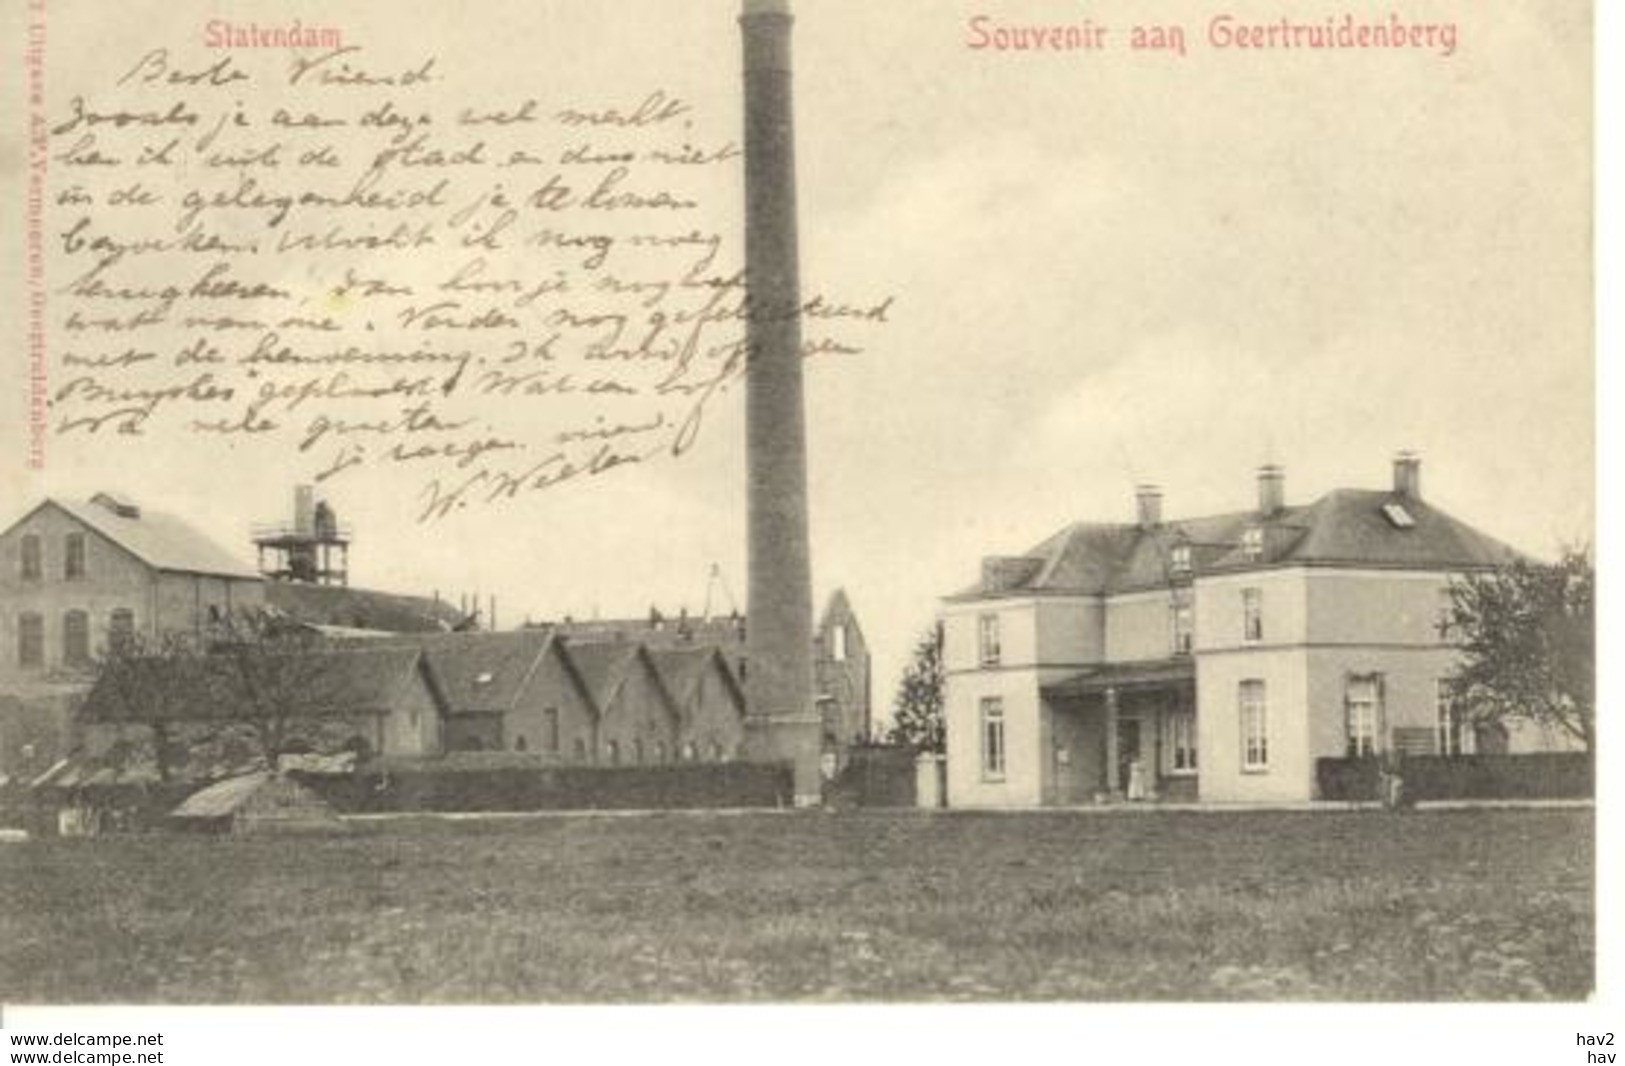 Statendam
Souvenir aan Geertruidenberg
Beste Vriend.
Zooals je aan deze wel merkt.
ben ik uit de stad en dus niet
in de gelegenheid je te komen
bezoeken. Mocht ik nog weg
terugkeeren, dan hoor je nog
wat van me. Verder nog gefeliciteerd
met de benoeming. Ik
geplaatst Wat een bof.
Na vele groeten
je
W.
Uitgave A.P. Vermeeren, Geertruidenberg
www.delcampe.net
www.delcampe.net
hav2
hav